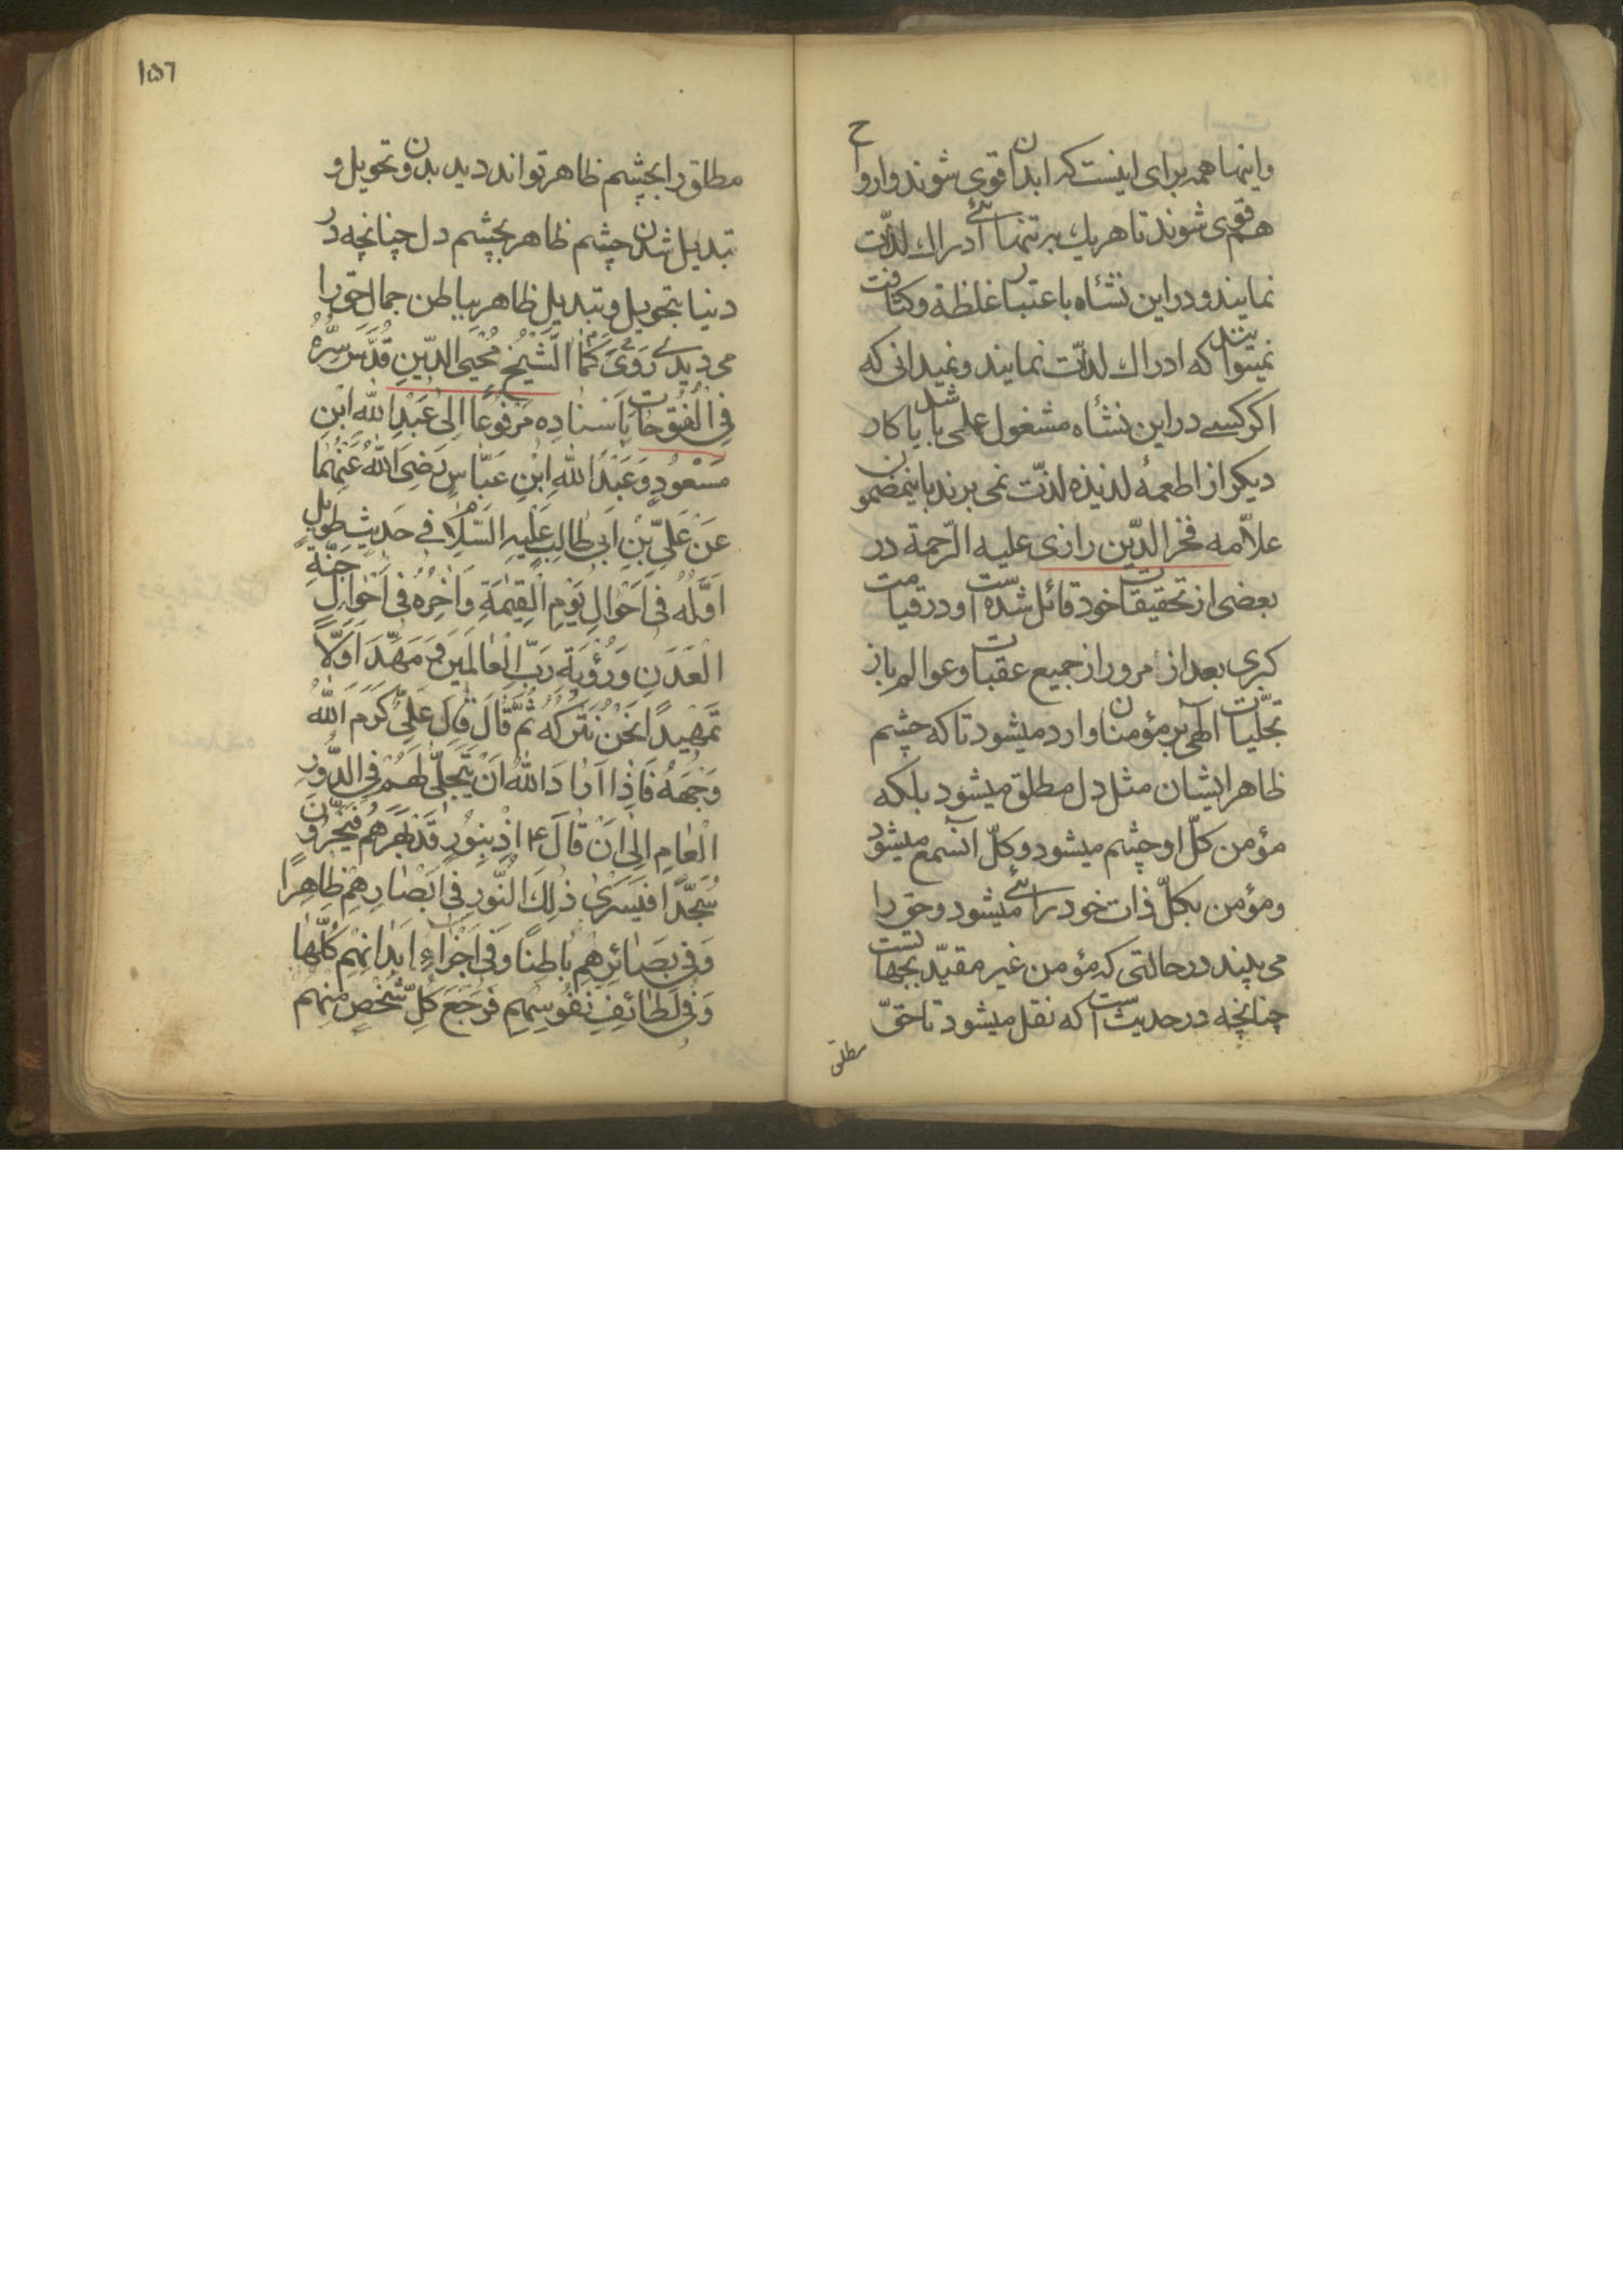 واینها همه برای اینست که ابدان قوی شوند وارواح
هم قوی شوند تا هر یك بر تنهائے ادراك لذّت
نمایند و در این نشأه باعتبار غلظة وکثافت
نمیتوانند که ادراك لذّت نمایند ونمیدانی که
اکر کسے در این نشأه مشغول علمی باشد یا کار
دیکر از اطعمهٔ لذیذه لذّت نمی برند باینمضمون
علاّمه فخر الدّین رازی علیه الرّحمة در
بعضی از تحقیقات خود قائل شده است و در قیامت
کبری بعد از مرور از جمیع عقبات وعوالم باز
تجلّیات آلهی بر مؤمنان وارد میشود تا که چشم
ظاهر ایشان مثل دل مطلق میشود بلکه
مؤمن کلّ او چشم میشود وکلّ انسمع میشود
ومؤمن بکلّ ذات خود رائے میشود وحق را
می بیند در حالتی که مؤمن غیر مقیّد بجهاتست
چنانچه در حدیث است که نقل میشود تا حقّ
مطلق
١٥٦
مطلق را بچشم ظاهر تواند دید بدون تحویل و
تبدیل شدن چشم ظاهر بچشم دل چنانچه در
دنیا بتحویل وتبدیل ظاهر بباطن جمال حق را
می دیدے رَوٰی كَمَا الشَّيْخُ مُحْيِی الدّينِ قُدِّسَ سِرُّهُ
فِی الْفُتُوحَاتِ بِاَسْنادِه مَرْفُوعًا اِلٰی عَبْدِ اللّٰهِ ابْنِ
مَسْعُودٍ وَعَبْدِ اللّٰهِ ابْنِ عَبَّاسٍ رَضِیَ اللّٰهُ عَنْهُمَا
عَنْ عَلِیِّ بْنِ اَبی طَالِبٍ عَلَيْهِ السَّلَامُ فے حَديثٍ طَويلٍ
اَوَّلُهُ فی اَحْوَالِ يَوْمِ الْقِيٰمَةِ وَاٰخِرُهُ فی اَحْوَالِ جَنَّةِ
الْعَدَنِ وَرُؤْيَةِ رَبِّ الْعَالَمِينَ مَهَّدَ اَوَّلًا
تَمْهيدًا نَحْنُ نَتْرُكُهُ ثُمَّ قَالَ قَالَ عَلِیٌّ كَرَّمَ اللّٰهُ
وَجْهَهُ فَاِذَا اَرَادَ اللّٰهُ اَنْ يَتَجَلّٰی لَهُمْ فِی الزَّوْرِ
الْعَامِ اِلٰی اَنْ قَالَ ع اِذْ بِنُورٍ قَدْ بَهَرَهُمْ فَيَخِرُّونَ
سُجَّدًا فَيَسْرٰی ذٰلِكَ النُّورُ فی اَبْصَارِهِمْ ظَاهِرًا
وَفی بَصَائِرِهِمْ بَاطِنًا وَفی اَجْزَاءِ اَبْدَانِهِمْ كُلِّهَا
وَفی لَطَائِفِ نُفُوسِهِمْ فَرَجَعَ كُلُّ شَخْصٍ مِنْهُمْ